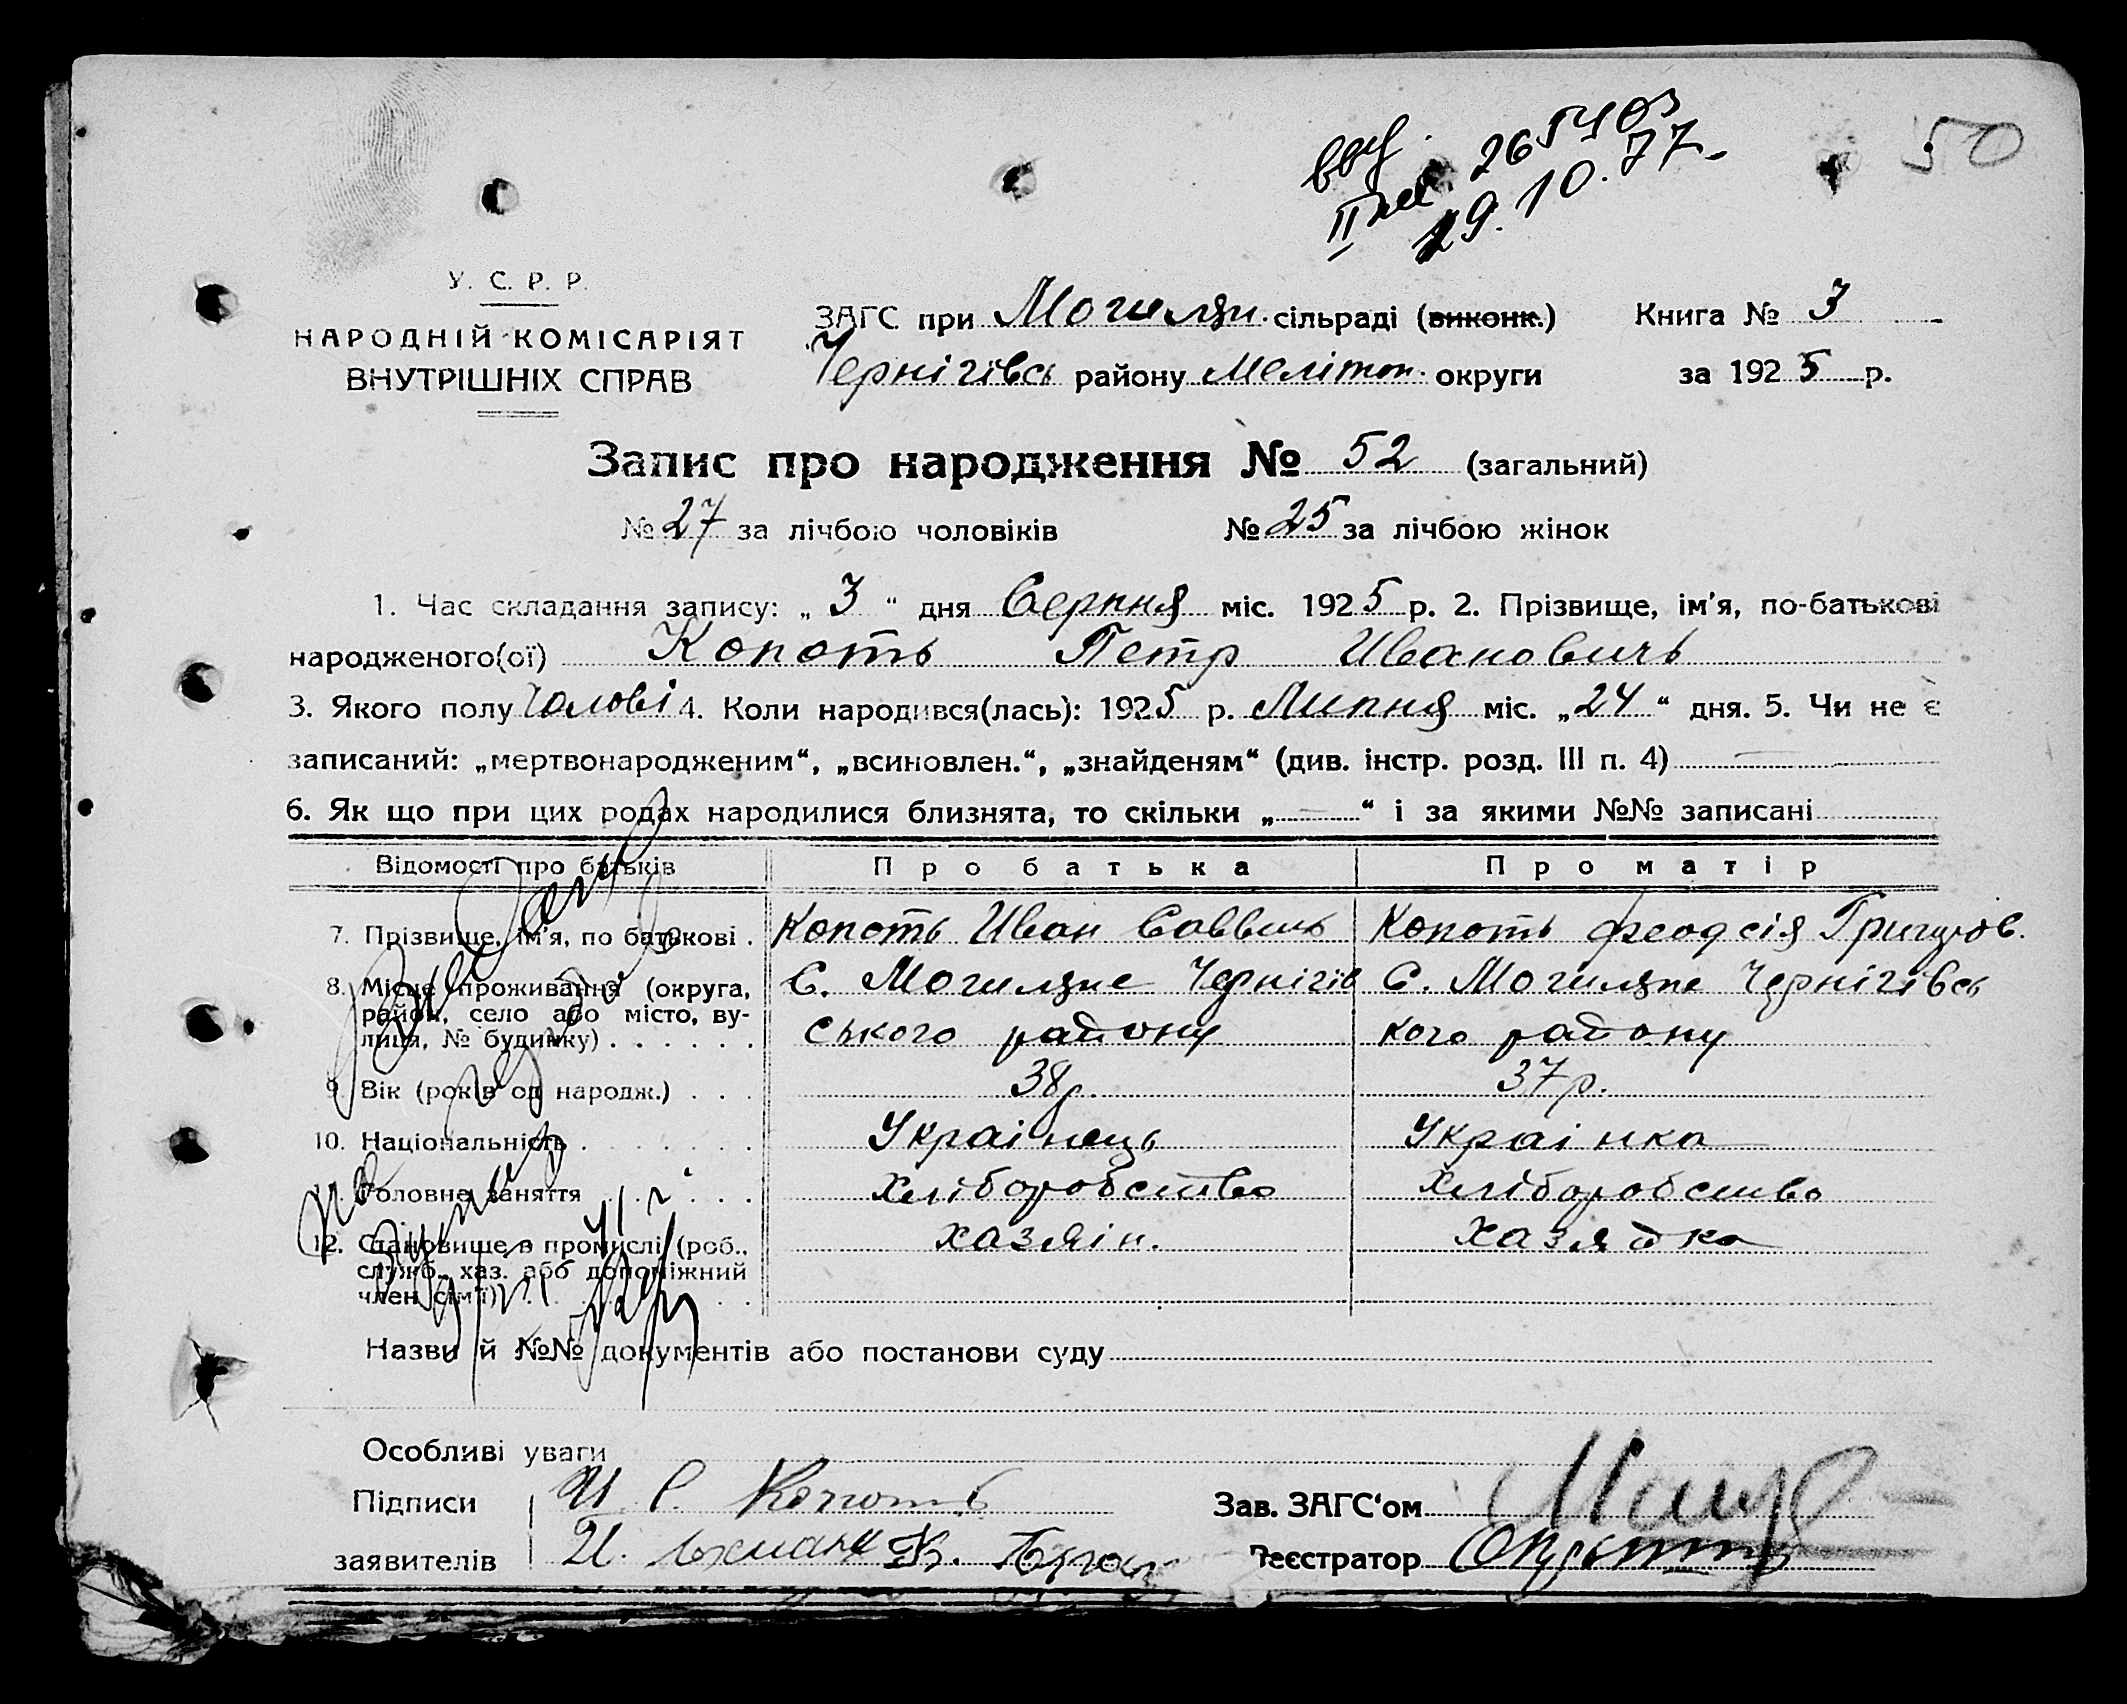 50
26 54 03
29.10.77.
У. С. Р. Р.
НАРОДНІЙ КОМІСАРІЯТ
ВНУТРІШНІХ СПРАВ
ЗАГС при сільраді (виконк.) Книга № 3
Чернігівсь району Мелітоп. округи за 1925 р.
Запис про народження № 52 (загальний)
№ 27 за лічбою чоловіків № 25 за лічбою жінок
1. Час складання запису: „ 3 “ дня Серпня міс. 1925 р. 2. Прізвище, ім'я, по-батькові
народженого(ої) Копоть Петр Иванович
3. Якого полу Чолові 4. Коли народився(лась): 1925 р. Липня міс. „24“ дня. 5. Чи не є
записаний: „мертвонародженим“, „всиновлен.“, „знайденям“ (див. інстр. розд. III п. 4)
6. Як що при цих родах народилися близнята, то скільки „ “ і за якими №№ записані
Відомості про батьків Про батька Про матір
7. Прізвище, ім'я, по батькові . Копоть Иван Саввич Копоть Феодсія Григоров.
8. Місце проживання (округа, С. Чернігів С. Чернігівсь
район, село або місто, ву-
лиця, № будинку) . . . . . . ського району кого району
9. Вік (років од народж.) . . . 38р. 37р.
10. Національність . . . . . . . Украінець Украінка
11. Головне заняття . . . . . Хліборобство Хліборобство
12. Становище в промислі (роб., хазяін. хазяйка
служб., хаз. або допоміжний
член сім'ї)
Назви й №№ документів або постанови суду
Особливі уваги
Підписи И С. Копоть Зав. ЗАГС‘ом
заявителів И. Реєстратор